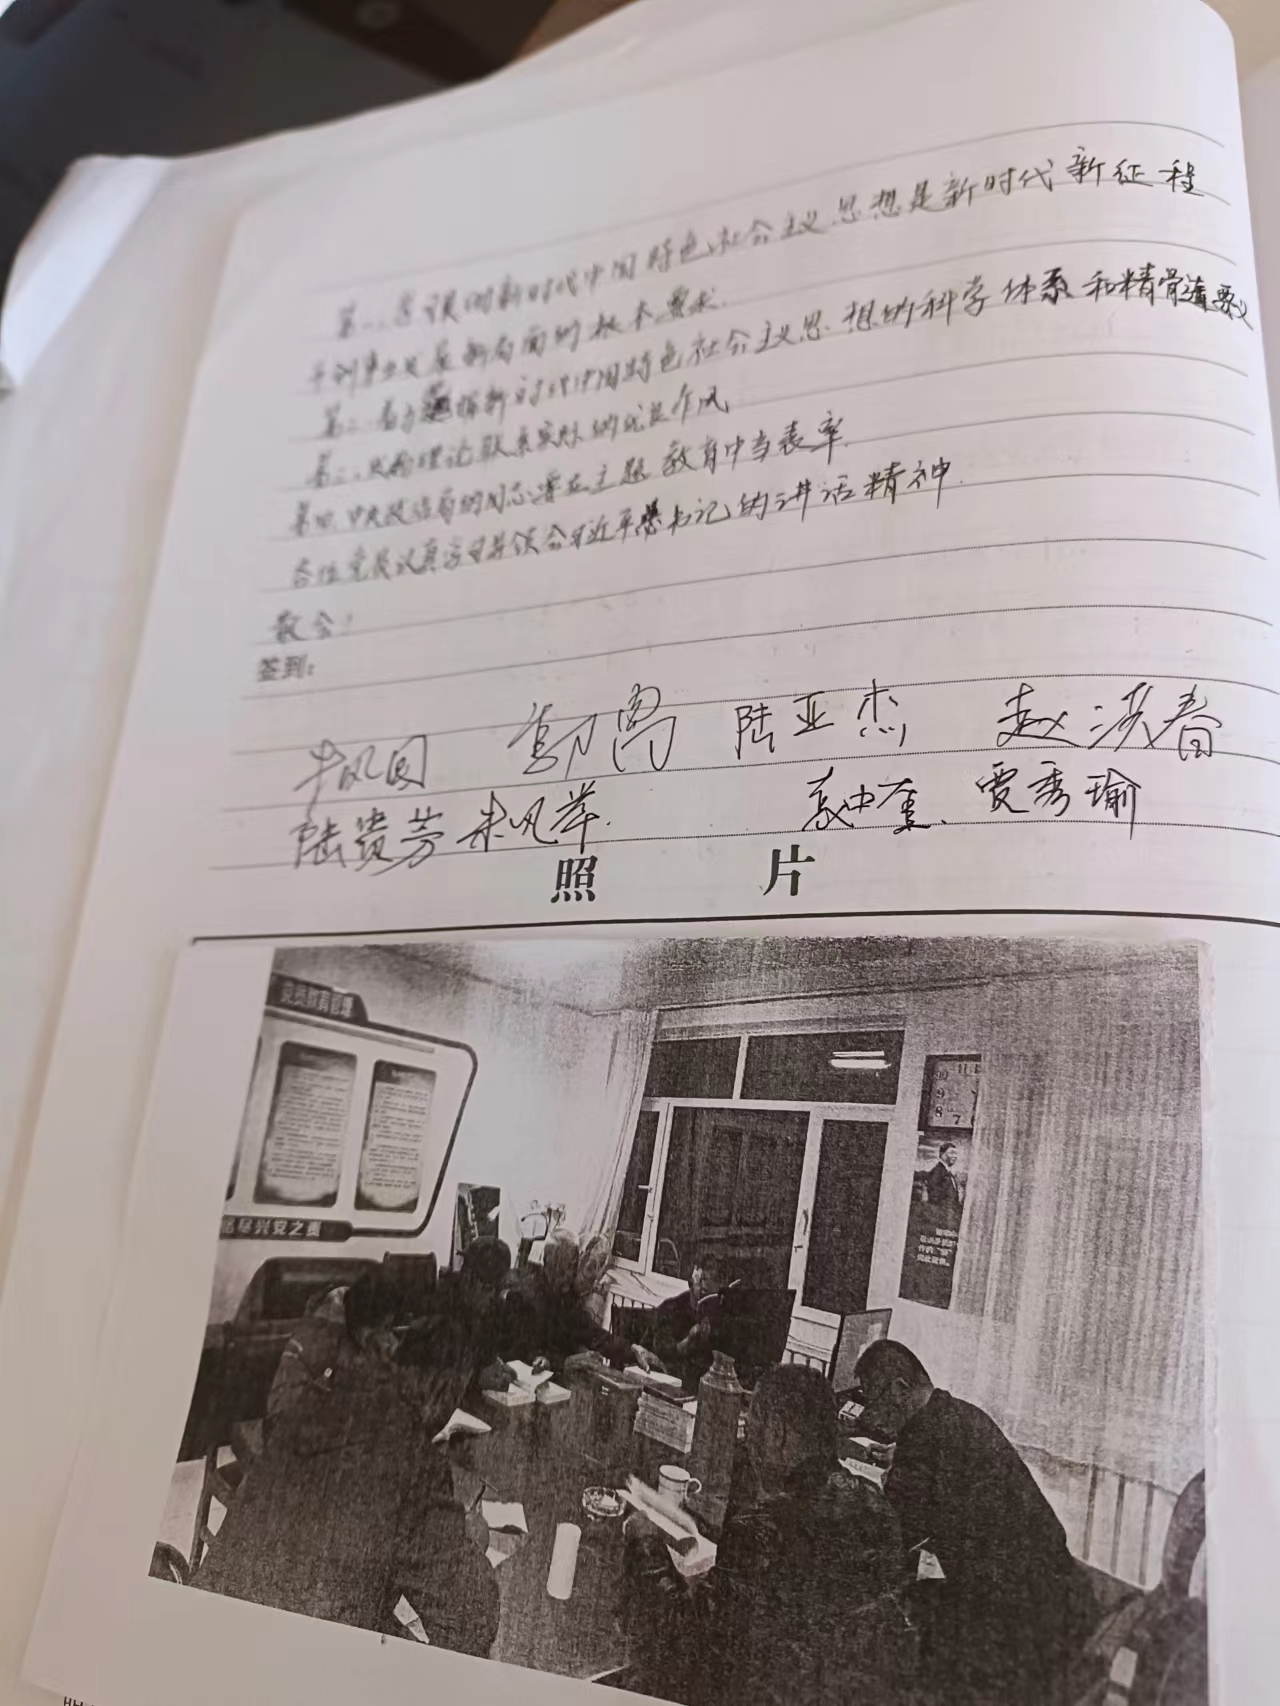 第一、深刻领悟新时代中国特色社会主义思想是新时代新征程
开创事业发展新局面的根本要求.
第二、着力把握新时代中国特色社会主义思想的科学体系和精髓要义
第三、理论联系实际的优良作风
第四、中央政治局的同志要在主题教育中当表率.
各位党员认真学习并领会习近平总书记的讲话精神.
散会!
签到:
牛凤国 陆亚杰 赵洪春
陆贵芳 朱凤举. 贾秀瑜
照 片
党员教育管理
尽兴安之责
10 11
9
8 7